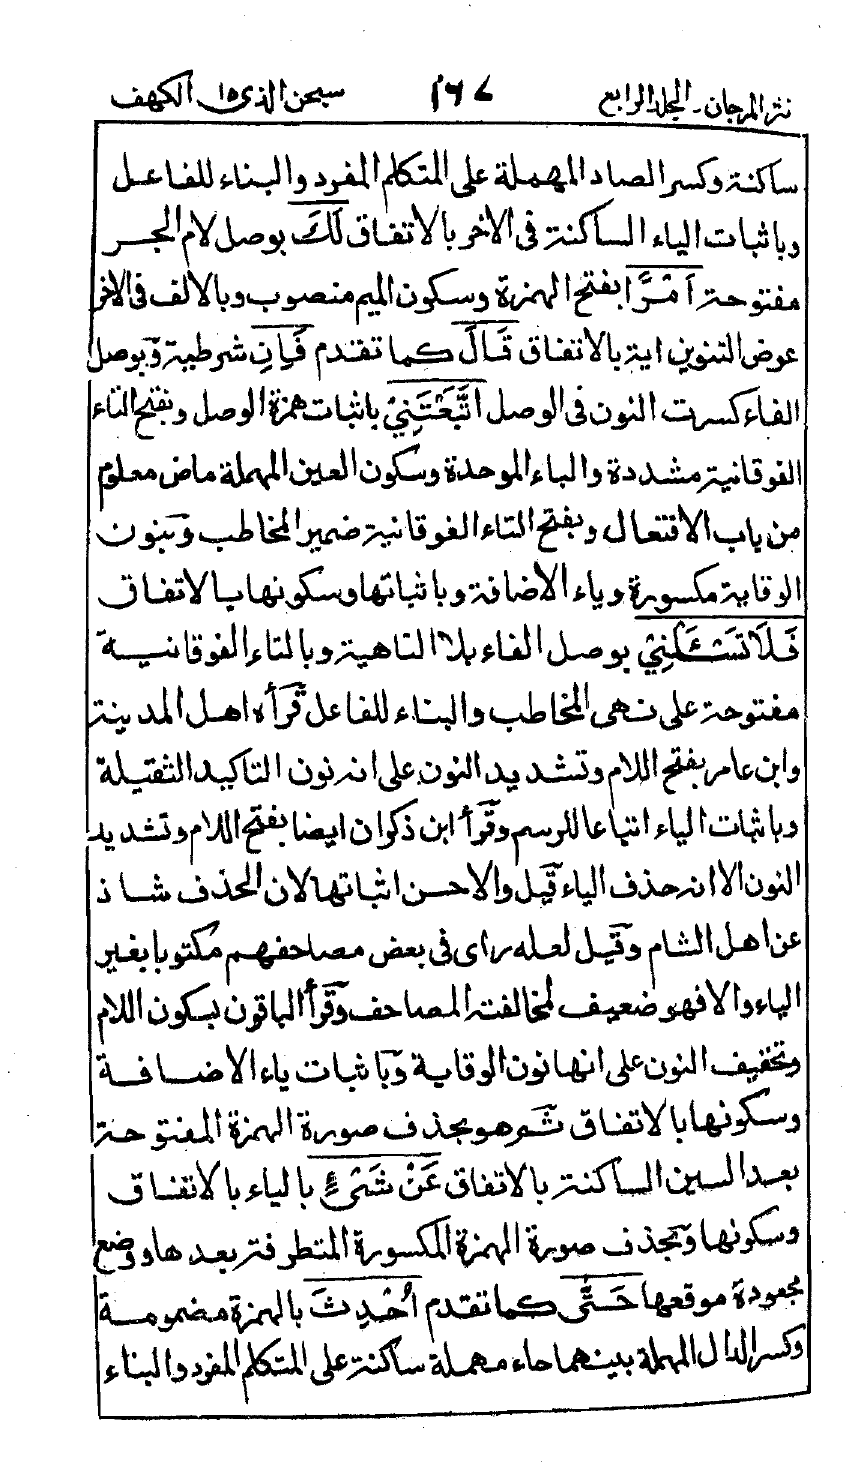 نثر المرجان ـ المجلد الرابع ١٦٧ سبحن الذی ١٥ الکهف
ساکنة وکسر الصاد المهملة علی المتکلم المفرد والبناء للفاعل
وباثبات الیاء الساکنة فی الاخر بالاتفاق لَكَ بوصل لام الجر
مفتوحة اَمْرًا بفتح الهمزة وسکون المیم منصوب وبالالف فی الاخر
عوض التنوین ایة بالاتفاق قَالَ کما تقدم فَاِنِ شرطیة وبوصل
الفاء کسرت النون فی الوصل اتَّبَعْتَنِیْ باثبات همزة الوصل وبفتح التاء
الفوقانیة مشددة والباء الموحدة وسکون العین المهملة ماض معلوم
من باب الافتعال وبفتح التاء الفوقانیة ضمیر المخاطب وبنون
الوقایة مکسورة ویاء الاضافة وباثباتها وسکونها بالاتفاق
فَلَا تَسْـَٔلْنِیْ بوصل الفاء بلا الناهیة وبالتاء الفوقانیة
مفتوحة علی نهی المخاطب والبناء للفاعل قرأه اهل المدینة
وابن عامر بفتح اللام وتشدید النون علی انه نون التاکید الثقیلة
وباثبات الیاء اتباعا للرسم وقرأ ابن ذکوان ایضا بفتح اللام وتشدید
النون الا انه حذف الیاء قیل والاحسن اثباتها لان الحذف شاذ
عن اهل الشام وقیل لعله رای فی بعض مصاحفهم مکتوبا بغیر
الیاء والا فهو ضعیف لمخالفته المصاحف وقرأ الباقون بسکون اللام
وتخفیف النون علی انها نون الوقایة وباثبات یاء الاضافة
وسکونها بالاتفاق ثم هو بحذف صورة الهمزة المفتوحة
بعد السین الساکنة بالاتفاق عَنْ شَیْءٍ بالیاء بالاتفاق
وسکونها وبحذف صورة الهمزة المکسورة المتطرفة بعدها ووضع
مجعودة موقعها حَتّٰی کما تقدم اُحْدِثَ بالهمزة مضمومة
وکسر الدال المهملة بینهما حاء مهملة ساکنة علی المتکلم المفرد والبناء